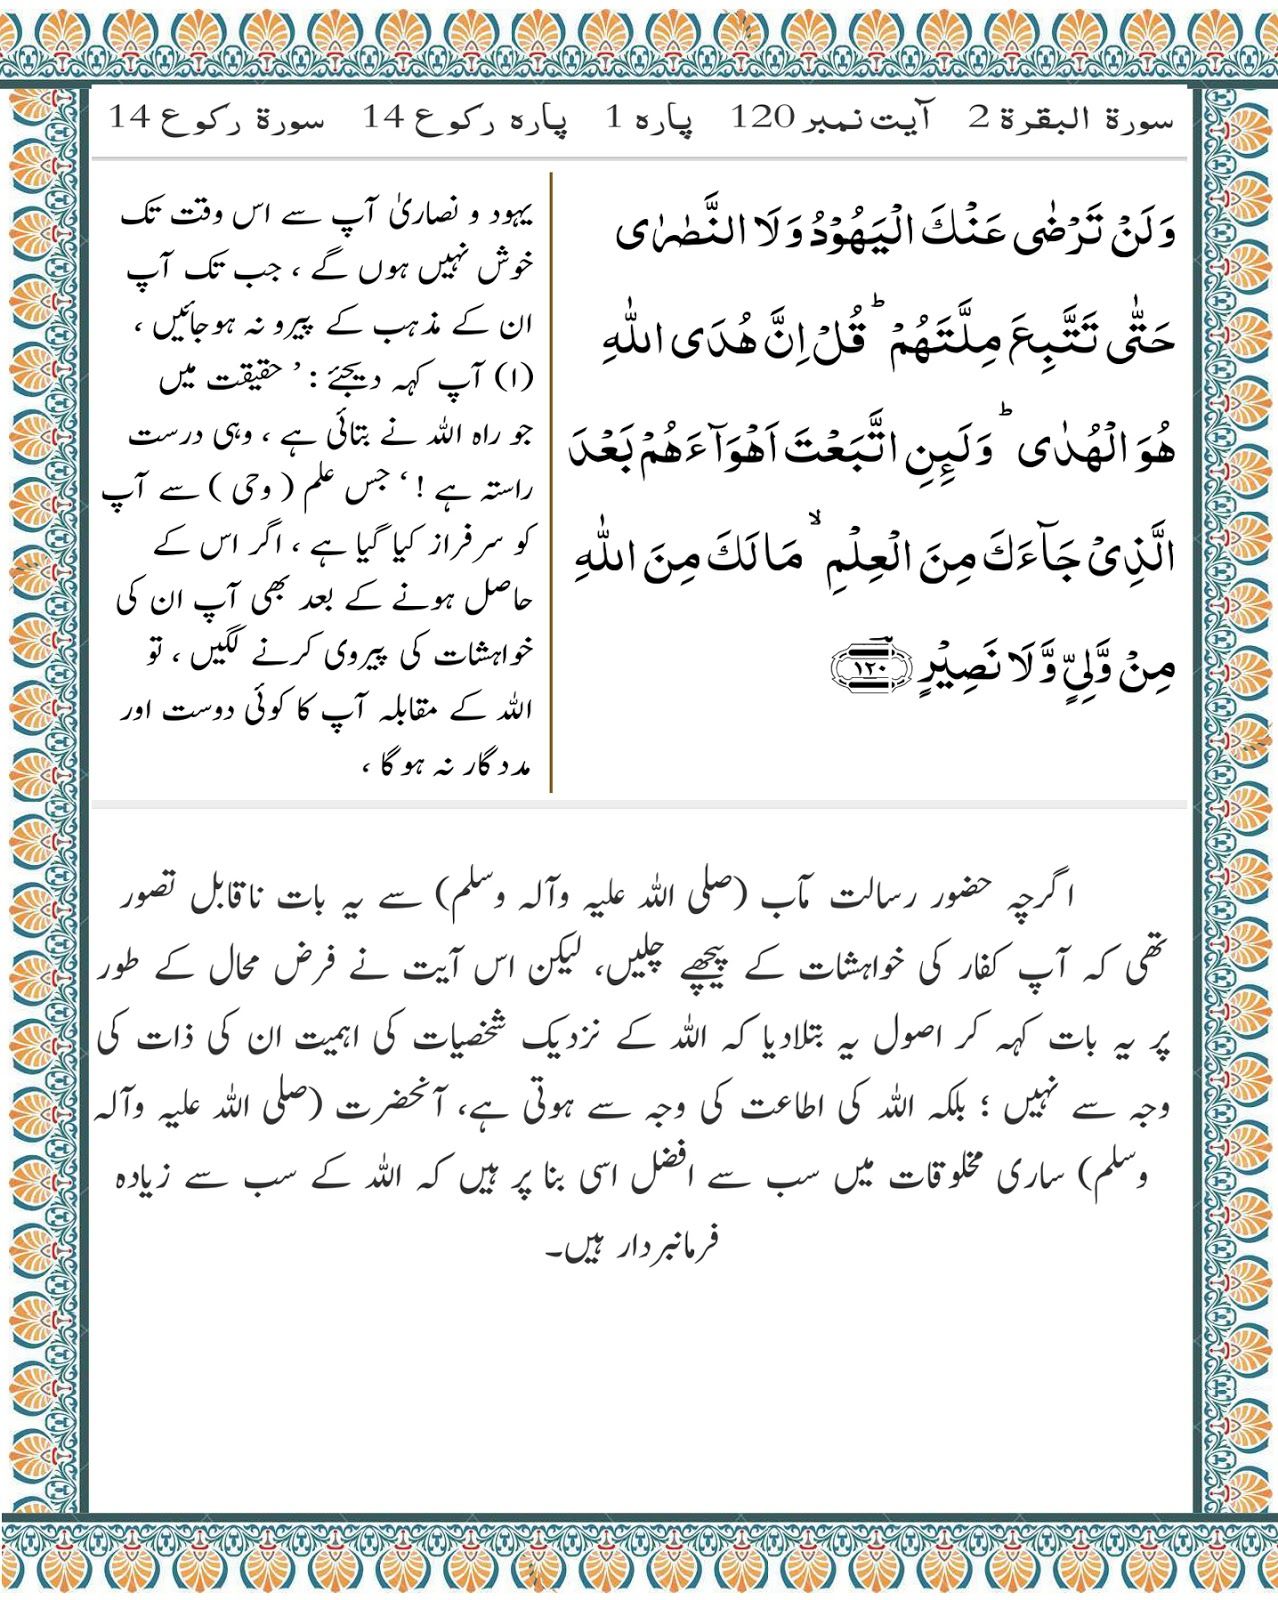 سورۃ البقرۃ 2 آیت نمبر 120 پارہ 1 پارہ رکوع 14 سورۃ رکوع 14
وَلَنْ تَرْضٰى عَنْكَ الْيَهُوْدُ وَلَا النَّصٰرٰى
حَتّٰى تَتَّبِعَ مِلَّتَهُمْ ؕ قُلْ اِنَّ هُدَى اللّٰهِ
هُوَ الْهُدٰى ؕ وَلَٮِٕنِ اتَّبَعْتَ اَهْوَآءَهُمْ بَعْدَ
الَّذِىْ جَآءَكَ مِنَ الْعِلْمِ ۙ مَا لَكَ مِنَ اللّٰهِ
مِنْ وَّلِىٍّ وَّلَا نَصِيْرٍ ﴿۱۲۰﴾
یہود و نصاریٰ آپ سے اس وقت تک
خوش نہیں ہوں گے ، جب تک آپ
ان کے مذہب کے پیرو نہ ہوجائیں ،
(۱) آپ کہہ دیجئے : ’ حقیقت میں
جو راہ اللہ نے بتائی ہے ، وہی درست
راستہ ہے ! ‘ جس علم ( وحی ) سے آپ
کو سرفراز کیا گیا ہے ، اگر اس کے
حاصل ہونے کے بعد بھی آپ ان کی
خواہشات کی پیروی کرنے لگیں ، تو
اللہ کے مقابلہ آپ کا کوئی دوست اور
مددگار نہ ہوگا ،
اگرچہ حضور رسالت مآب (صلی اللہ علیہ وآلہ وسلم) سے یہ بات ناقابل تصور
تھی کہ آپ کفار کی خواہشات کے پیچھے چلیں، لیکن اس آیت نے فرض محال کے طور
پر یہ بات کہہ کر اصول یہ بتلادیا کہ اللہ کے نزدیک شخصیات کی اہمیت ان کی ذات کی
وجہ سے نہیں ؛ بلکہ اللہ کی اطاعت کی وجہ سے ہوتی ہے، آنحضرت (صلی اللہ علیہ وآلہ
وسلم) ساری مخلوقات میں سب سے افضل اسی بنا پر ہیں کہ اللہ کے سب سے زیادہ
فرمانبردار ہیں۔